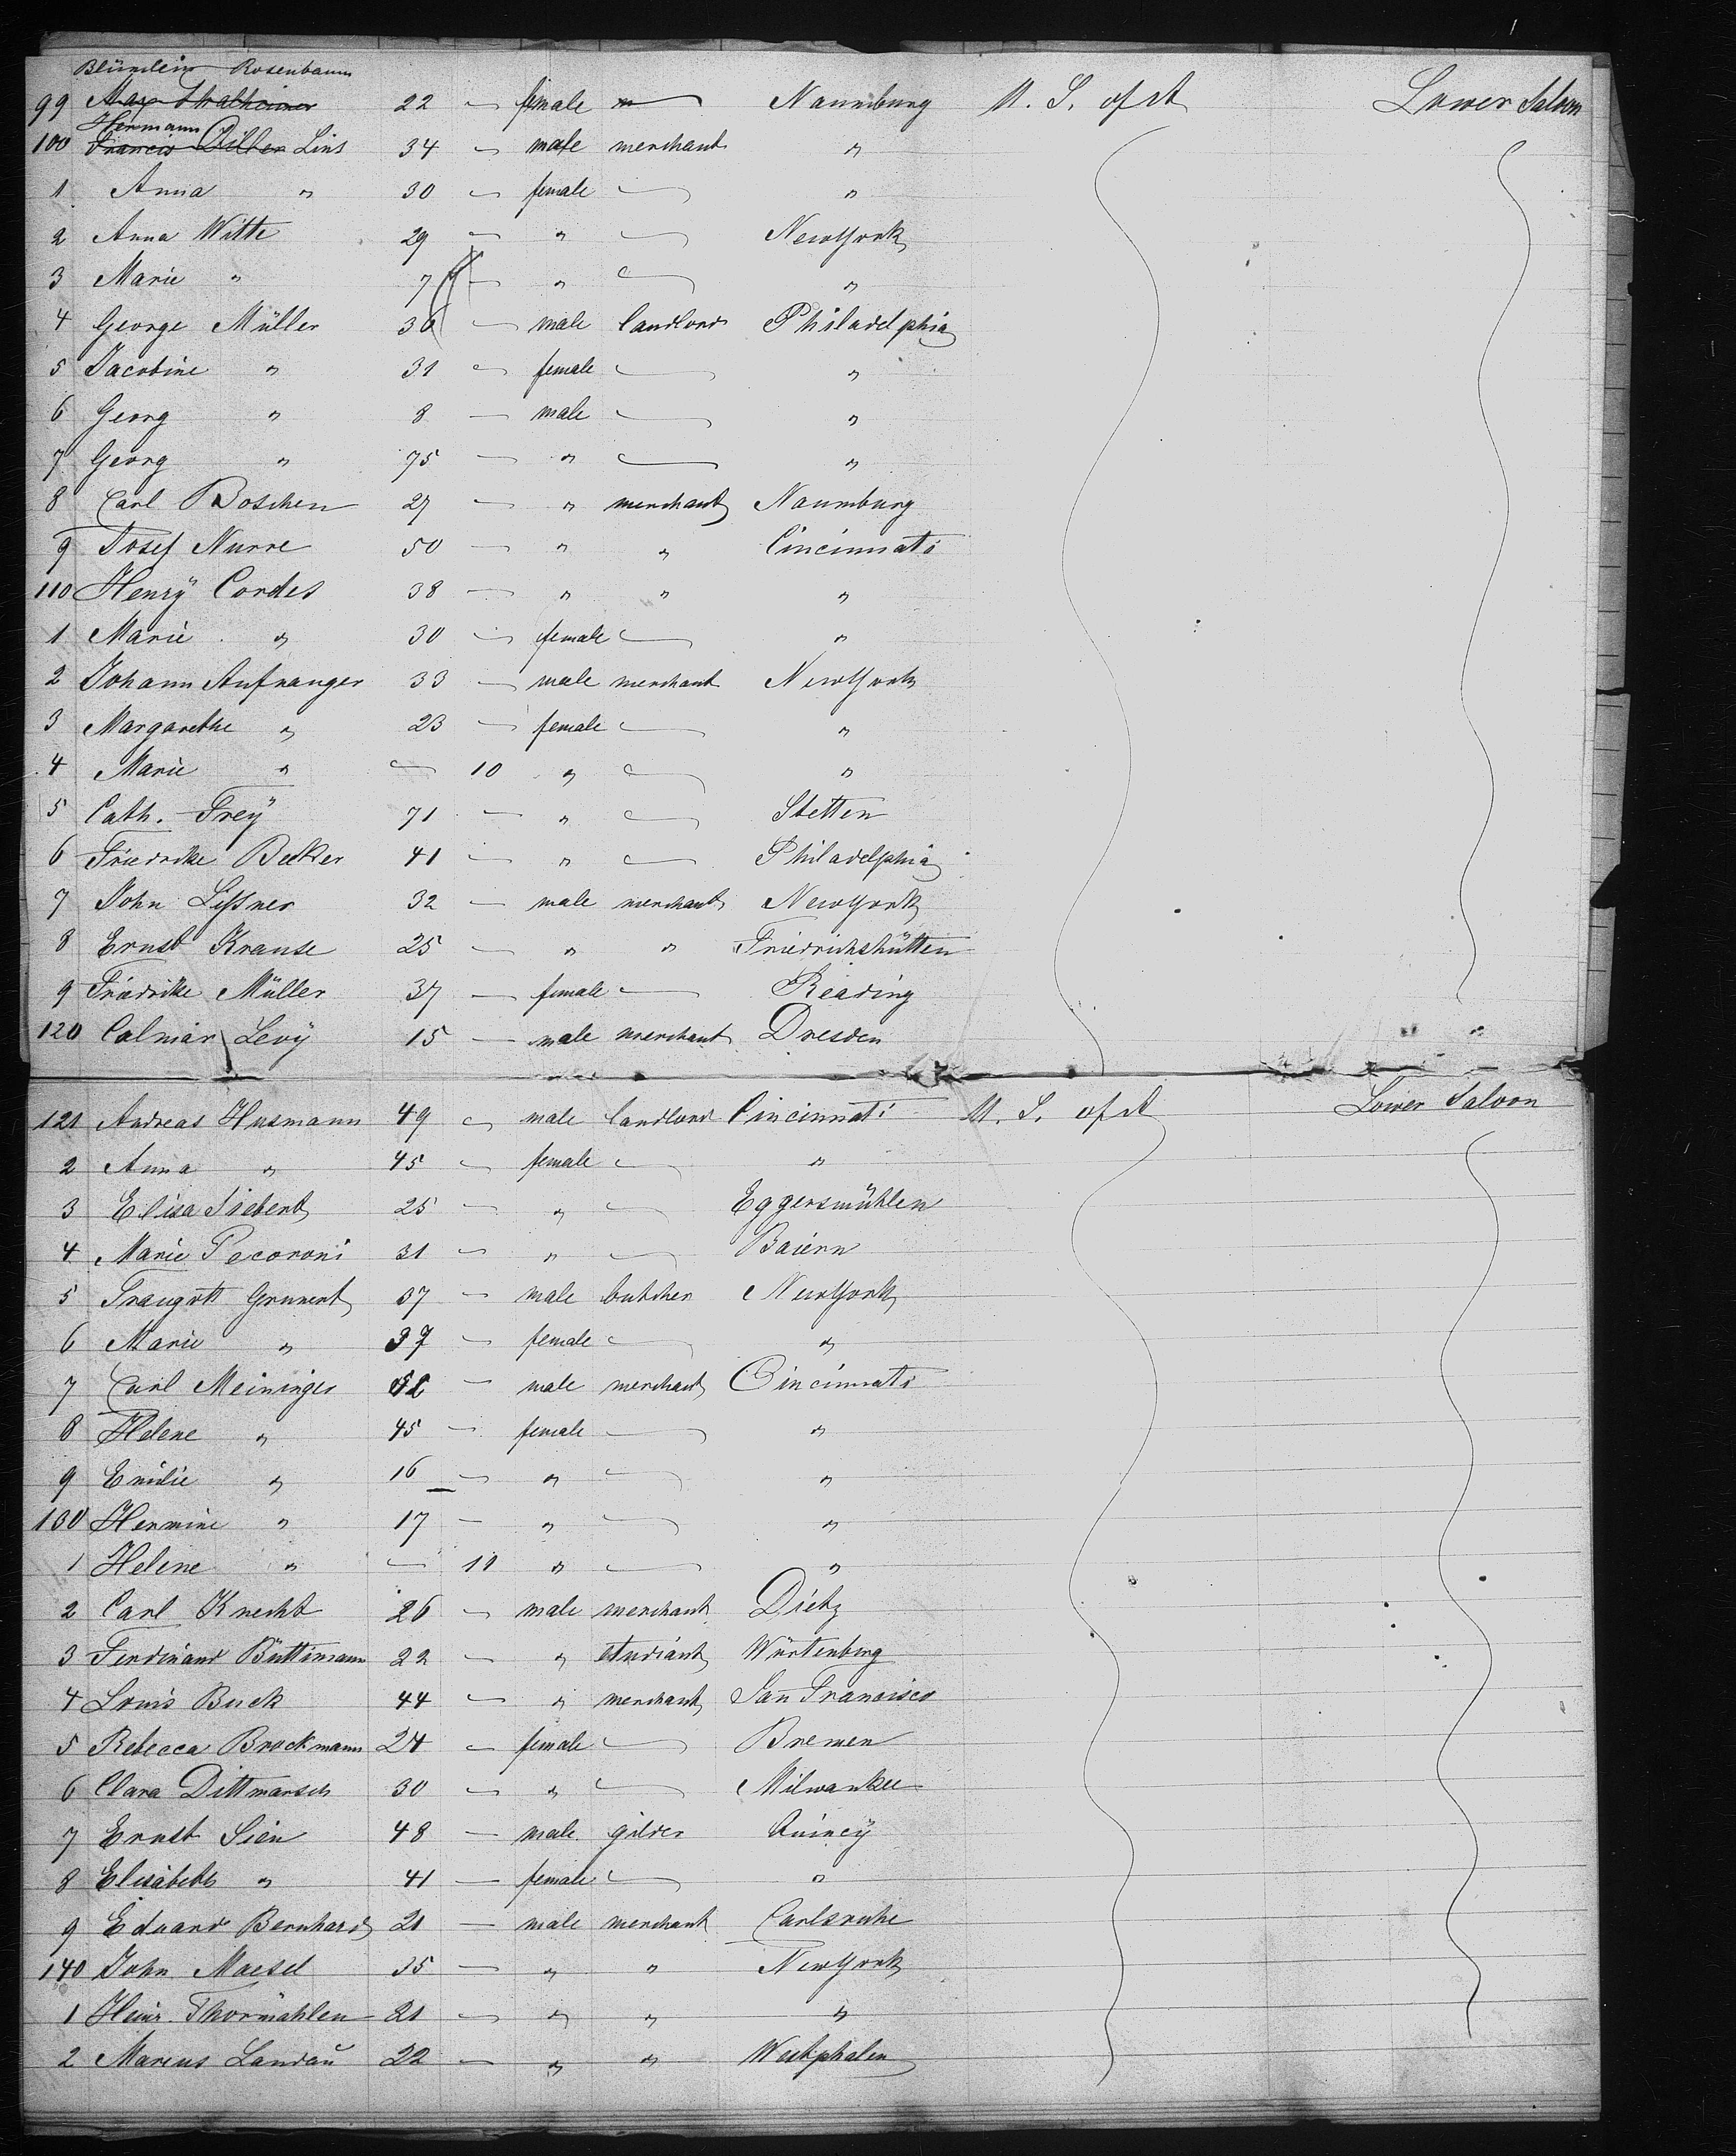 Blümlein Rosenbaum
99 Max Thalheimer 22 — female — Naumburg U. S. of A Lower Saloon
Hermann
100 Francis Lins 34 — male merchant "
1 Anna " 30 — female — "
2 Anna Witte 29 — " — New York
3 Marie " 7 — " — "
4 George Müller 36 — male landlord Philadelphia
5 Jacobine " 31 — female — "
6 Georg " 8 — male — "
7 Georg " 75 — " — "
8 Carl Boschen 27 — " merchant Naumburg
9 Josef Nurre 50 — " " Cincinnati
110 Henry Cordes 38 — " " "
1 Marie " 30 — female — "
2 Johann Aufranger 33 — male merchant New York
3 Margarethe " 23 — female — "
4 Marie " — 10 " — "
5 Cath. Frey 71 — " — Stetten
6 Friedrike Becker 41 — " — Philadelphia
7 John Lissner 32 — male merchant New York
8 Ernst Krause 25 — " " Friedrichshütten
9 Friedrike Müller 37 — female — Reading
120 Calmar Levy 15 — male merchant Dresden " "
121 Andreas Husmann 49 — male landlord Cincinnati U. S. of A Lower Saloon
2 Anna " 45 — female — "
3 Elisa Siebert 25 — " — Eggersmühlen
4 Marie Pecoroni 31 — " — Baiern
5 Traugott Grunert 37 — male butcher New York
6 Marie " 37 — female — "
7 Carl Meininger — male merchant Cincinnati
8 Helene " 45 — female — "
9 Emilie " 16 — " — "
130 Hermine " 17 — " — "
1 Helene " — 11 " — "
2 Carl Knecht 26 — male merchant Dietz
3 Ferdinand Büttimann 22 — " studiant Würtenberg
4 Louis Buck 44 — " merchant San Francisco
5 Rebecca Brockmann 24 — female — Bremen
6 Clara Dittmarsch 30 — " — Milwaukee
7 Ernst Sien 48 — male gilder Quincy
8 Elisabeth " 41 — female — "
9 Eduard Bernhard 21 — male merchant Carlsruhe
140 John Maesel 35 — " " New York
1 Heinr. Thormählen 21 — " " "
2 Marcus Landau 22 — " " Westphalen